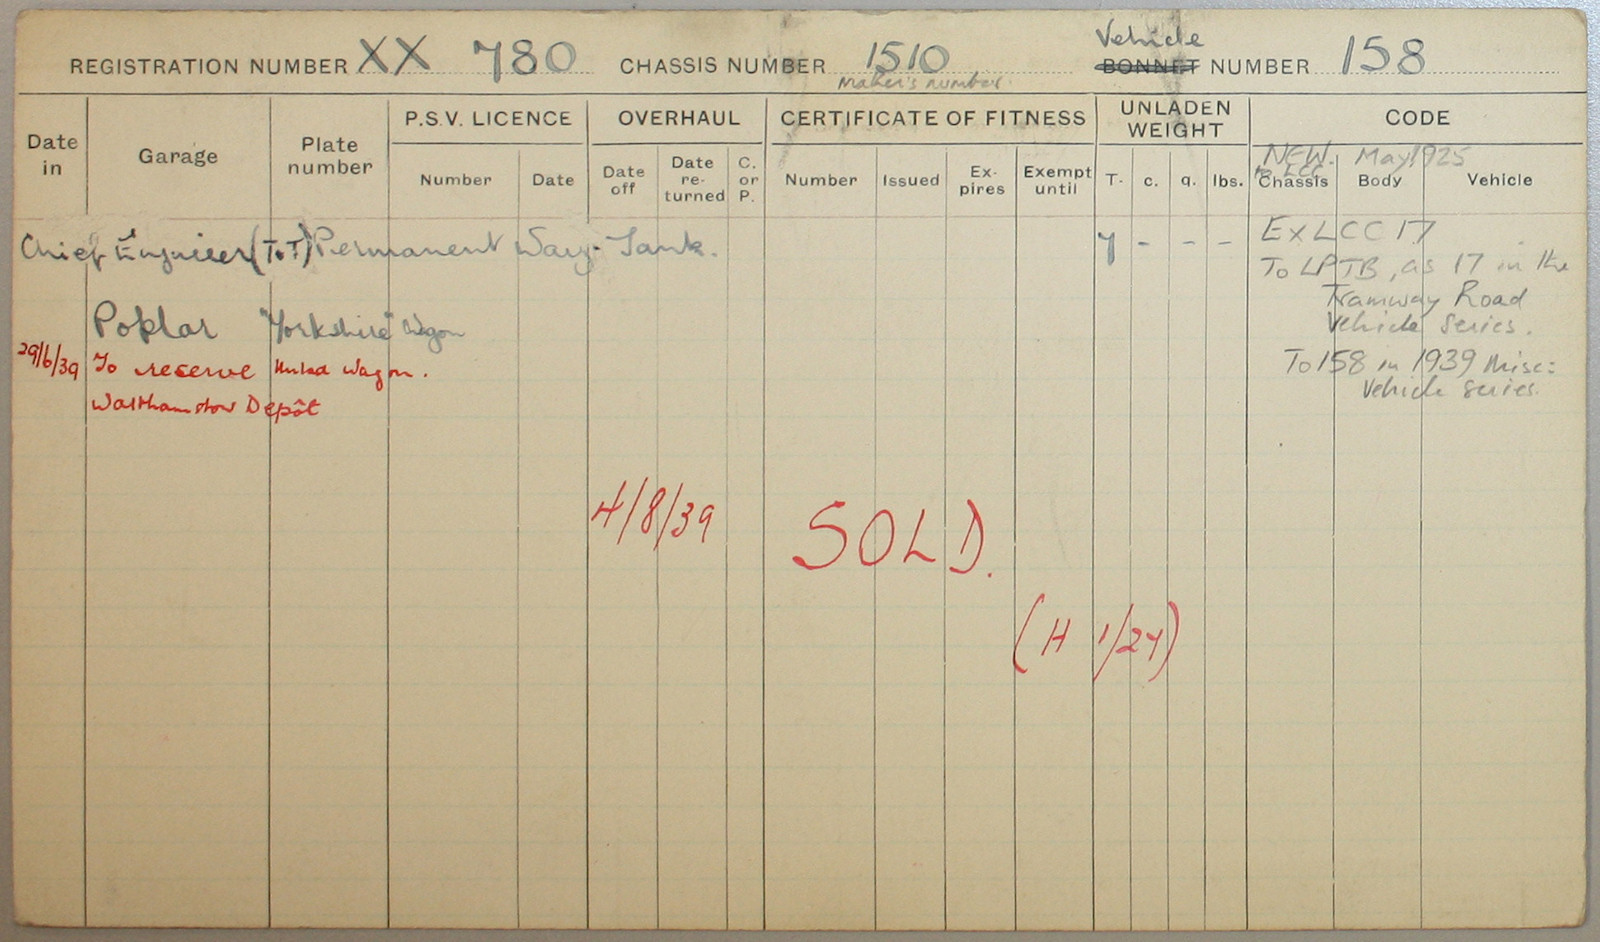 REGISTRATION NUMBER XX 780 CHASSIS NUMBER 1510 Vehicle BONNET NUMBER 158
Maker's number
Date in Garage Plate number P.S.V. LICENCE OVERHAUL CERTIFICATE OF FITNESS UNLADEN WEIGHT CODE
Number Date Date off Date re-turned C. or P. Number Issued Ex-pires Exempt until T. c. q. lbs. Chassis Body Vehicle
NEW. May 1925
to LCC
Chief Engineer (T.o.T) Permanent Way - Tank. 7 - - - Ex LCC 17
To LPTB, as 17 in the
Tramway Road
Vehicle Series.
Poplar "Yorkshire" Wagon
29/6/39 To reserve Wagon.
To 158 in 1939 Misc:
Vehicle series.
Walthamstow Depôt
4/8/39 SOLD.
(H 1/24)